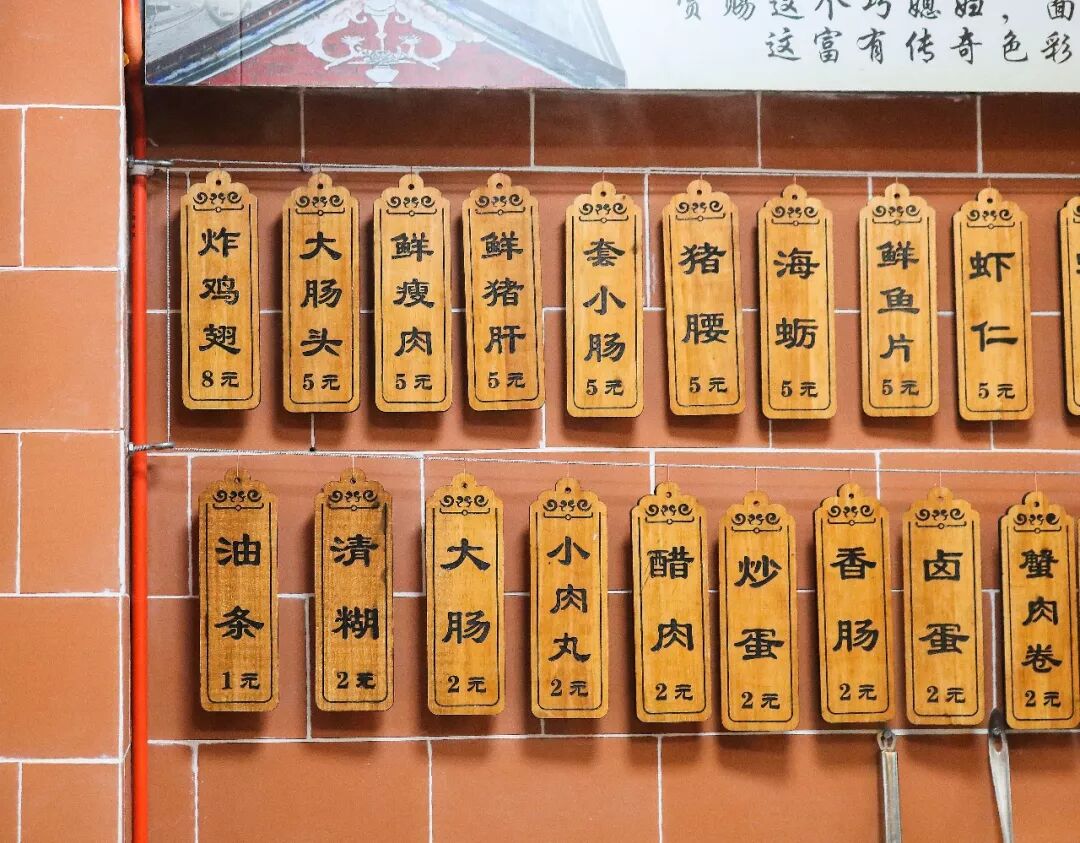 赐这个巧媳妇，面
这富有传奇色彩
炸鸡翅 8元
大肠头 5元
鲜瘦肉 5元
鲜猪肝 5元
套小肠 5元
猪腰 5元
海蛎 5元
鲜鱼片 5元
虾仁 5元
油条 1元
清糊 2元
大肠 2元
小肉丸 2元
醋肉 2元
炒蛋 2元
香肠 2元
卤蛋 2元
蟹肉卷 2元